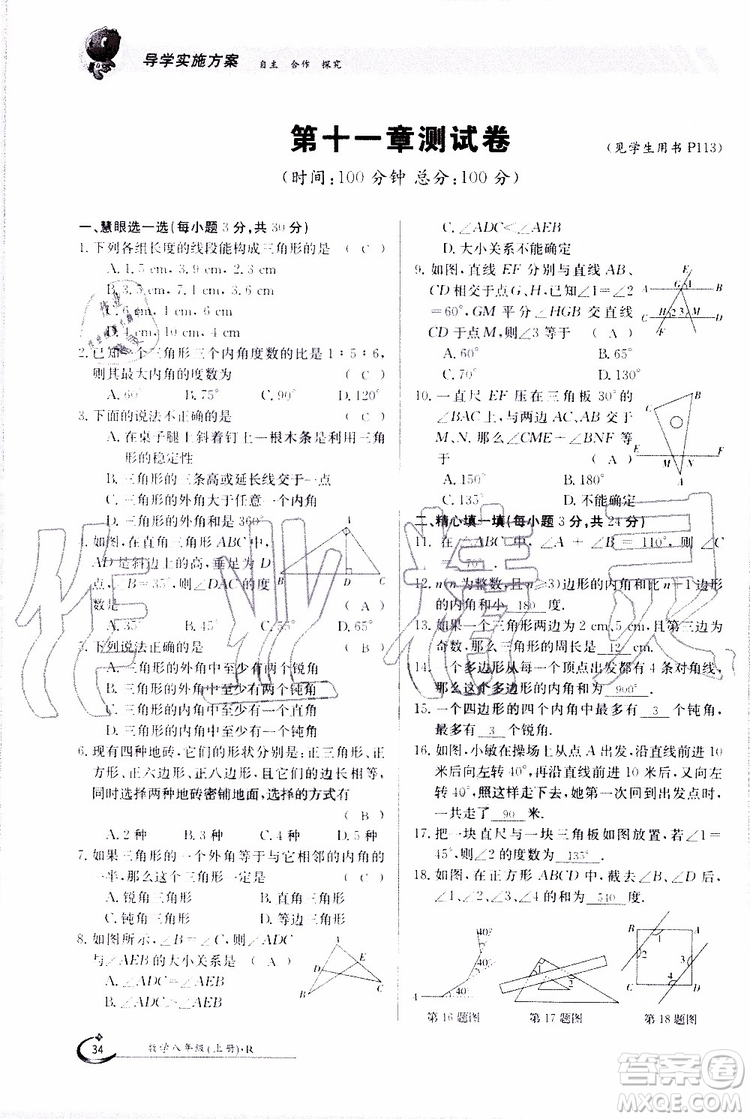 导学实施方案 自主 合作 探究
第十一章测试卷
(见学生用书 P113)
(时间:100 分钟 总分:100 分)
一、慧眼选一选(每小题 3 分,共 30 分)
1. 下列各组长度的线段能构成三角形的是 ( C )
A. 1.5 cm,3.9 cm,
B. 3.5 cm,
C. 6 cm,
D. 1 cm,
2. 已知一个三角形三个内角度数的比是 1∶5∶6,
则其最大内角的度数为 ( C )
A. 60° B. 75° C. 90° D. 120°
3. 下面的说法不正确的是 ( C )
A. 在桌子腿上斜着钉上一根木条是利用三角
形的稳定性
B. 三角形的三条高或延长线交于一点
C. 三角形的外角大于任意一个内角
D. 三角形的外角和是 360°
4. 如图,在直角三角形 ABC 中,
AD 是斜边上的高,垂足为 D
点,∠B=35°,则∠DAC 的度
数是 ( A )
A. 35° B. 45° C. 55° D. 65°
5. 下列说法正确的是 ( D )
A. 三角形的内角中至少有两个锐角
B. 三角形的外角中至少有两个钝角
C. 三角形的内角中至少有一个直角
6. 现有四种地砖,它们的形状分别是:正三角形、正
方形、正六边形、正八边形,且它们的边长相等,同
时选择两种地砖密铺地面,选择的方式有
( B )
A. 2 种 B. 3 种 C. 4 种 D. 5 种
7. 如果三角形的一个外角等于与它相邻的内角的
一半,那么这个三角形是 ( C )
A. 锐角三角形 B. 直角三角形
C. 钝角三角形 D. 等边三角形
8. 如图所示,∠B=∠C,则∠ADC
与∠AEB 的大小关系是 ( A )
A. ∠ADC=∠AEB
B. ∠ADC>∠AEB
C. ∠ADC<∠AEB
D. 大小关系不能确定
9. 如图,直线 EF 分别与直线AB、
CD 相交于点 G、H,已知∠1=∠2
=60°,GM 平分∠HGB 交直线
CD 于点 M,则∠3等于 ( A )
A. 60° B. 65°
C. 70° D. 130°
10. 一直尺 EF 压在三角板 30°的
∠BAC上,与两边 AC、AB 交于
M、N. 那么∠CME+∠BNF 等
于 ( A )
A. 150° B. 180°
C. 135° D. 不能确定
二、精心填一填(每小题 3 分,共 24 分)
11. 在△ABC 中,∠A+∠B=110°,则∠C
= 70° .
12. n(n 为整数,且 n≥3)边形的内角和比 n-1 边形
的内角和小 180 度.
13. 如果一个三角形两边为 2 cm,5 cm,且第三边为
奇数,则三角形的周长是 12 cm.
14. 一个多边形从每一个顶点出发都有 4 条对角线,
则这个多边形的内角和为 900° .
15. 一个四边形的四个内角中最多有 3 个钝角,
最多有 3 个锐角.
16. 如图,小敏在操场上从点 A 出发,沿直线前进 10
米后向左转 40°,再沿直线前进 10 米后,又向左
转 40°,……照这样走下去,她第一次回到出发点
一共走了 90 米.
17. 把一块直尺与一块三角板如图放置,若∠1=
45°,则∠2的度数为 135° .
18. 如图,在正方形 ABCD 中,截去∠B、∠D 后,
∠1、∠2、∠3、∠4的和为 540 度.
第 16 题图 第 17 题图 第 18 题图
34 数学八年级(上册)·R
作业精灵